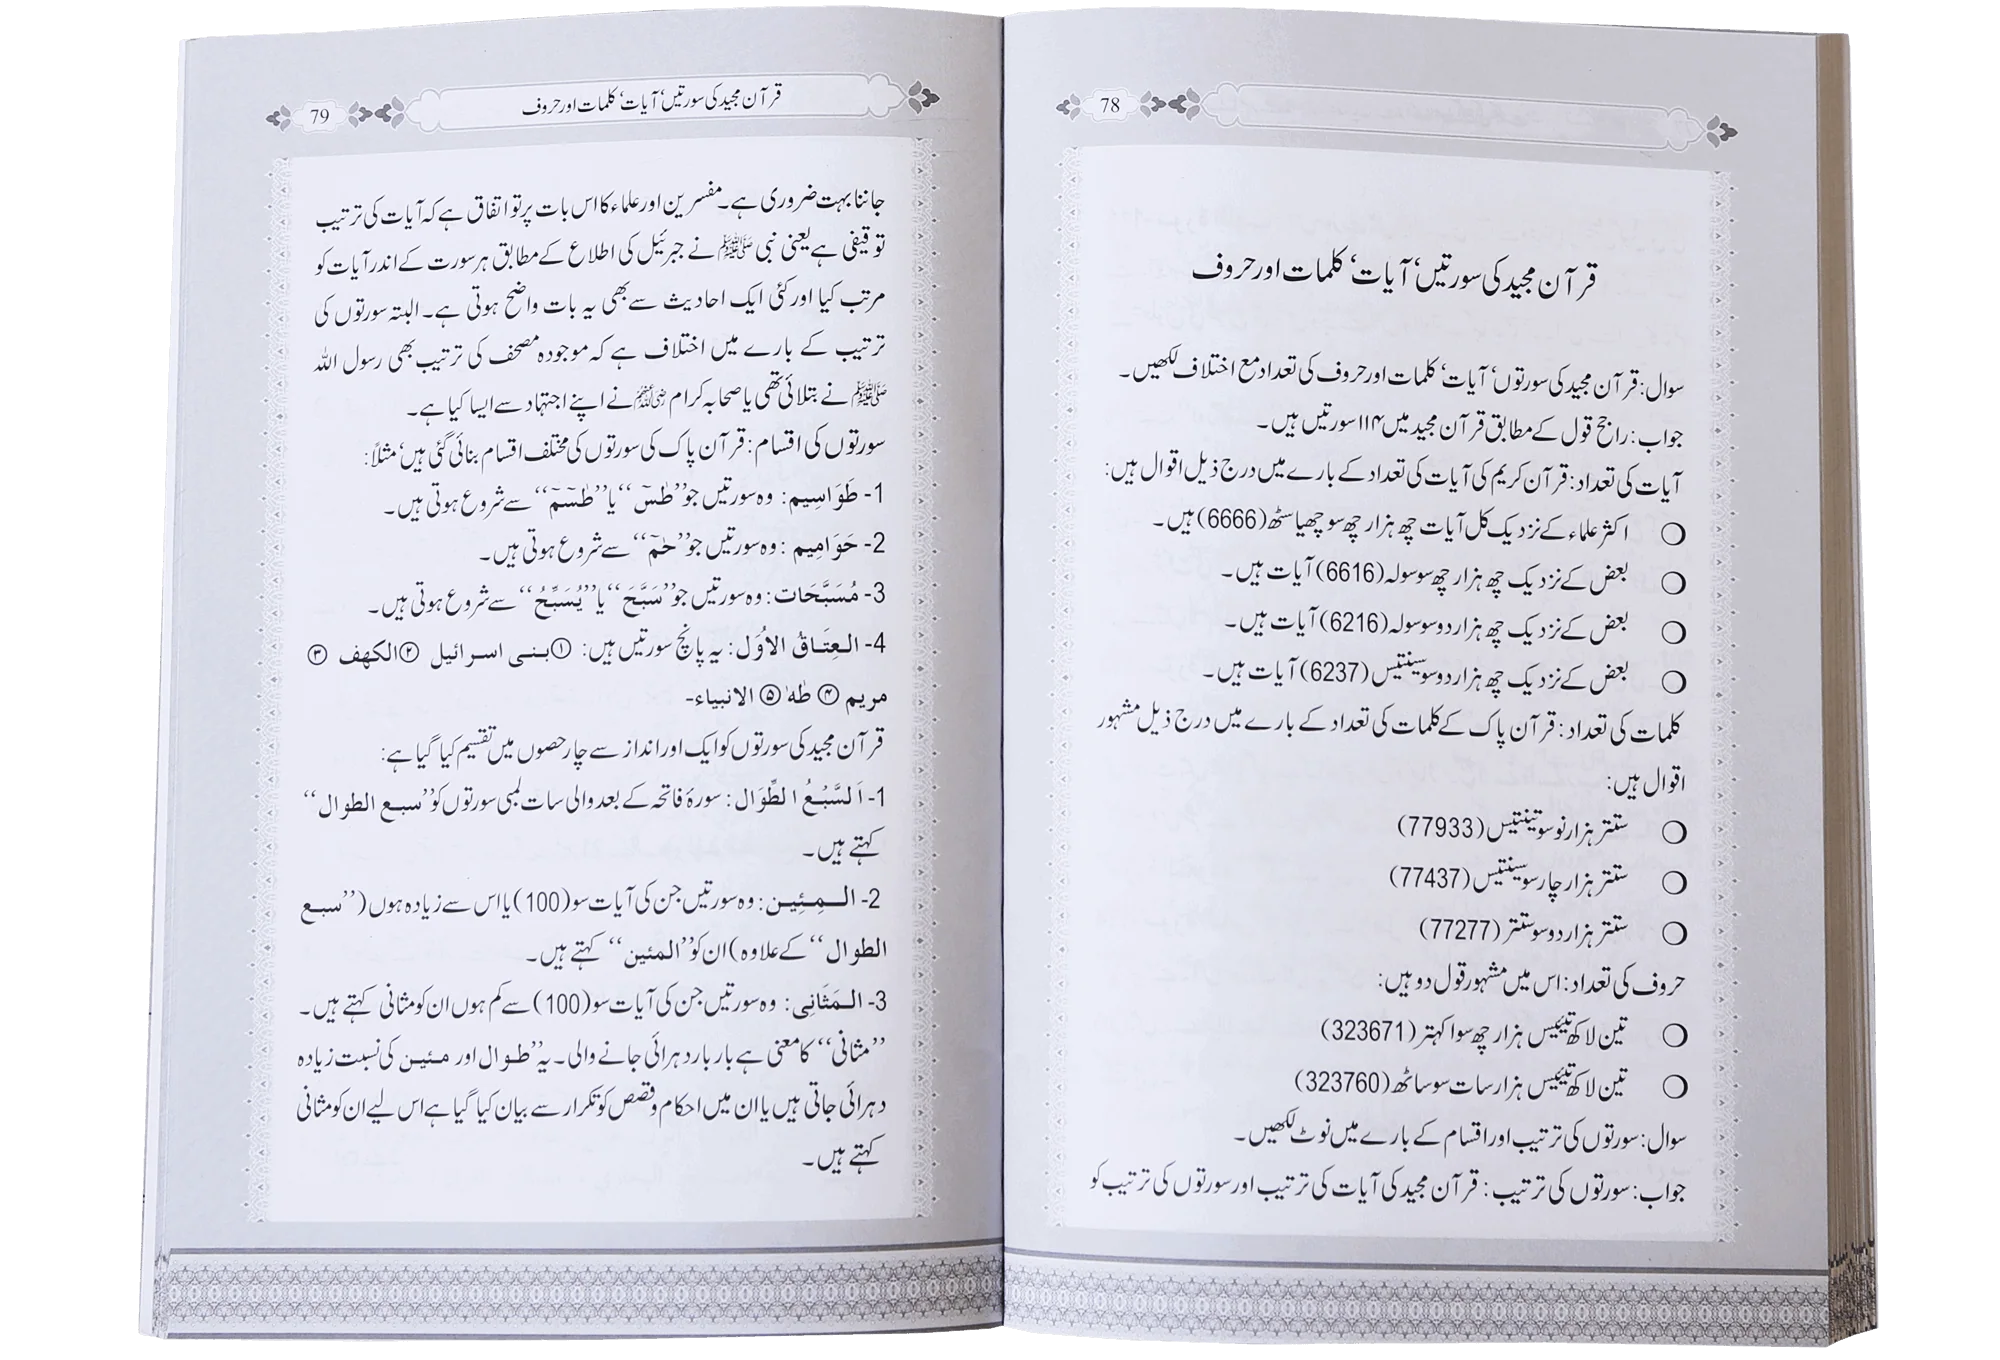 78
قرآن مجید کی سورتیں، آیات، کلمات اور حروف
سوال: قرآن مجید کی سورتوں، آیات، کلمات اور حروف کی تعداد مع اختلاف لکھیں۔
جواب: راجح قول کے مطابق قرآن مجید میں ۱۱۴ سورتیں ہیں۔
آیات کی تعداد: قرآن کریم کی آیات کی تعداد کے بارے میں درج ذیل اقوال ہیں:
○ اکثر علماء کے نزدیک کل آیات چھ ہزار چھ سو چھیاسٹھ (6666) ہیں۔
○ بعض کے نزدیک چھ ہزار چھ سو سولہ (6616) آیات ہیں۔
○ بعض کے نزدیک چھ ہزار دو سو سولہ (6216) آیات ہیں۔
○ بعض کے نزدیک چھ ہزار دو سو سینتیس (6237) آیات ہیں۔
کلمات کی تعداد: قرآن پاک کے کلمات کی تعداد کے بارے میں درج ذیل مشہور
اقوال ہیں:
○ ستتر ہزار نو سو تینتیس (77933)
○ ستتر ہزار چار سو سینتیس (77437)
○ ستتر ہزار دو سو ستتر (77277)
حروف کی تعداد: اس میں مشہور قول دو ہیں:
○ تین لاکھ تیئیس ہزار چھ سو اکہتر (323671)
○ تین لاکھ تیئیس ہزار سات سو ساٹھ (323760)
سوال: سورتوں کی ترتیب اور اقسام کے بارے میں نوٹ لکھیں۔
جواب: سورتوں کی ترتیب: قرآن مجید کی آیات کی ترتیب اور سورتوں کی ترتیب کو
قرآن مجید کی سورتیں، آیات، کلمات اور حروف
79
جاننا بہت ضروری ہے۔ مفسرین اور علماء کا اس بات پر تو اتفاق ہے کہ آیات کی ترتیب
توقیفی ہے یعنی نبی ﷺ نے جبرئیل کی اطلاع کے مطابق ہر سورت کے اندر آیات کو
مرتب کیا اور کئی ایک احادیث سے بھی یہ بات واضح ہوتی ہے۔ البتہ سورتوں کی
ترتیب کے بارے میں اختلاف ہے کہ موجودہ مصحف کی ترتیب بھی رسول اللہ
ﷺ نے بتلائی تھی یا صحابہ کرام رضی اللہ عنہم نے اپنے اجتہاد سے ایسا کیا ہے۔
سورتوں کی اقسام: قرآن پاک کی سورتوں کی مختلف اقسام بنائی گئی ہیں، مثلاً:
1- طَوَاسِیم: وہ سورتیں جو ’’طٰسٓ‘‘ یا ’’طٰسٓمٓ‘‘ سے شروع ہوتی ہیں۔
2- حَوَامِیم: وہ سورتیں جو ’’حٰمٓ‘‘ سے شروع ہوتی ہیں۔
3- مُسَبَّحَات: وہ سورتیں جو ’’سَبَّحَ‘‘ یا ’’یُسَبِّحُ‘‘ سے شروع ہوتی ہیں۔
4- العِتَاقُ الاُوَل: یہ پانچ سورتیں ہیں: ① بنی اسرائیل ② الکهف ③
مریم ④ طٰهٰ ⑤ الانبیاء-
قرآن مجید کی سورتوں کو ایک اور انداز سے چار حصوں میں تقسیم کیا گیا ہے:
1- اَلسَّبْعُ الطِّوَال: سورۂ فاتحہ کے بعد والی سات لمبی سورتوں کو ’’سبع الطوال‘‘
کہتے ہیں۔
2- المِئِین: وہ سورتیں جن کی آیات سو (100) یا اس سے زیادہ ہوں (’’سبع
الطوال‘‘ کے علاوہ) ان کو ’’المئین‘‘ کہتے ہیں۔
3- المَثَانِی: وہ سورتیں جن کی آیات سو (100) سے کم ہوں ان کو مثانی کہتے ہیں۔
’’مثانی‘‘ کا معنی ہے بار بار دہرائی جانے والی۔ یہ ’’طوال اور مئین کی نسبت زیادہ
دہرائی جاتی ہیں یا ان میں احکام و قصص کو تکرار سے بیان کیا گیا ہے اس لیے ان کو مثانی
کہتے ہیں۔